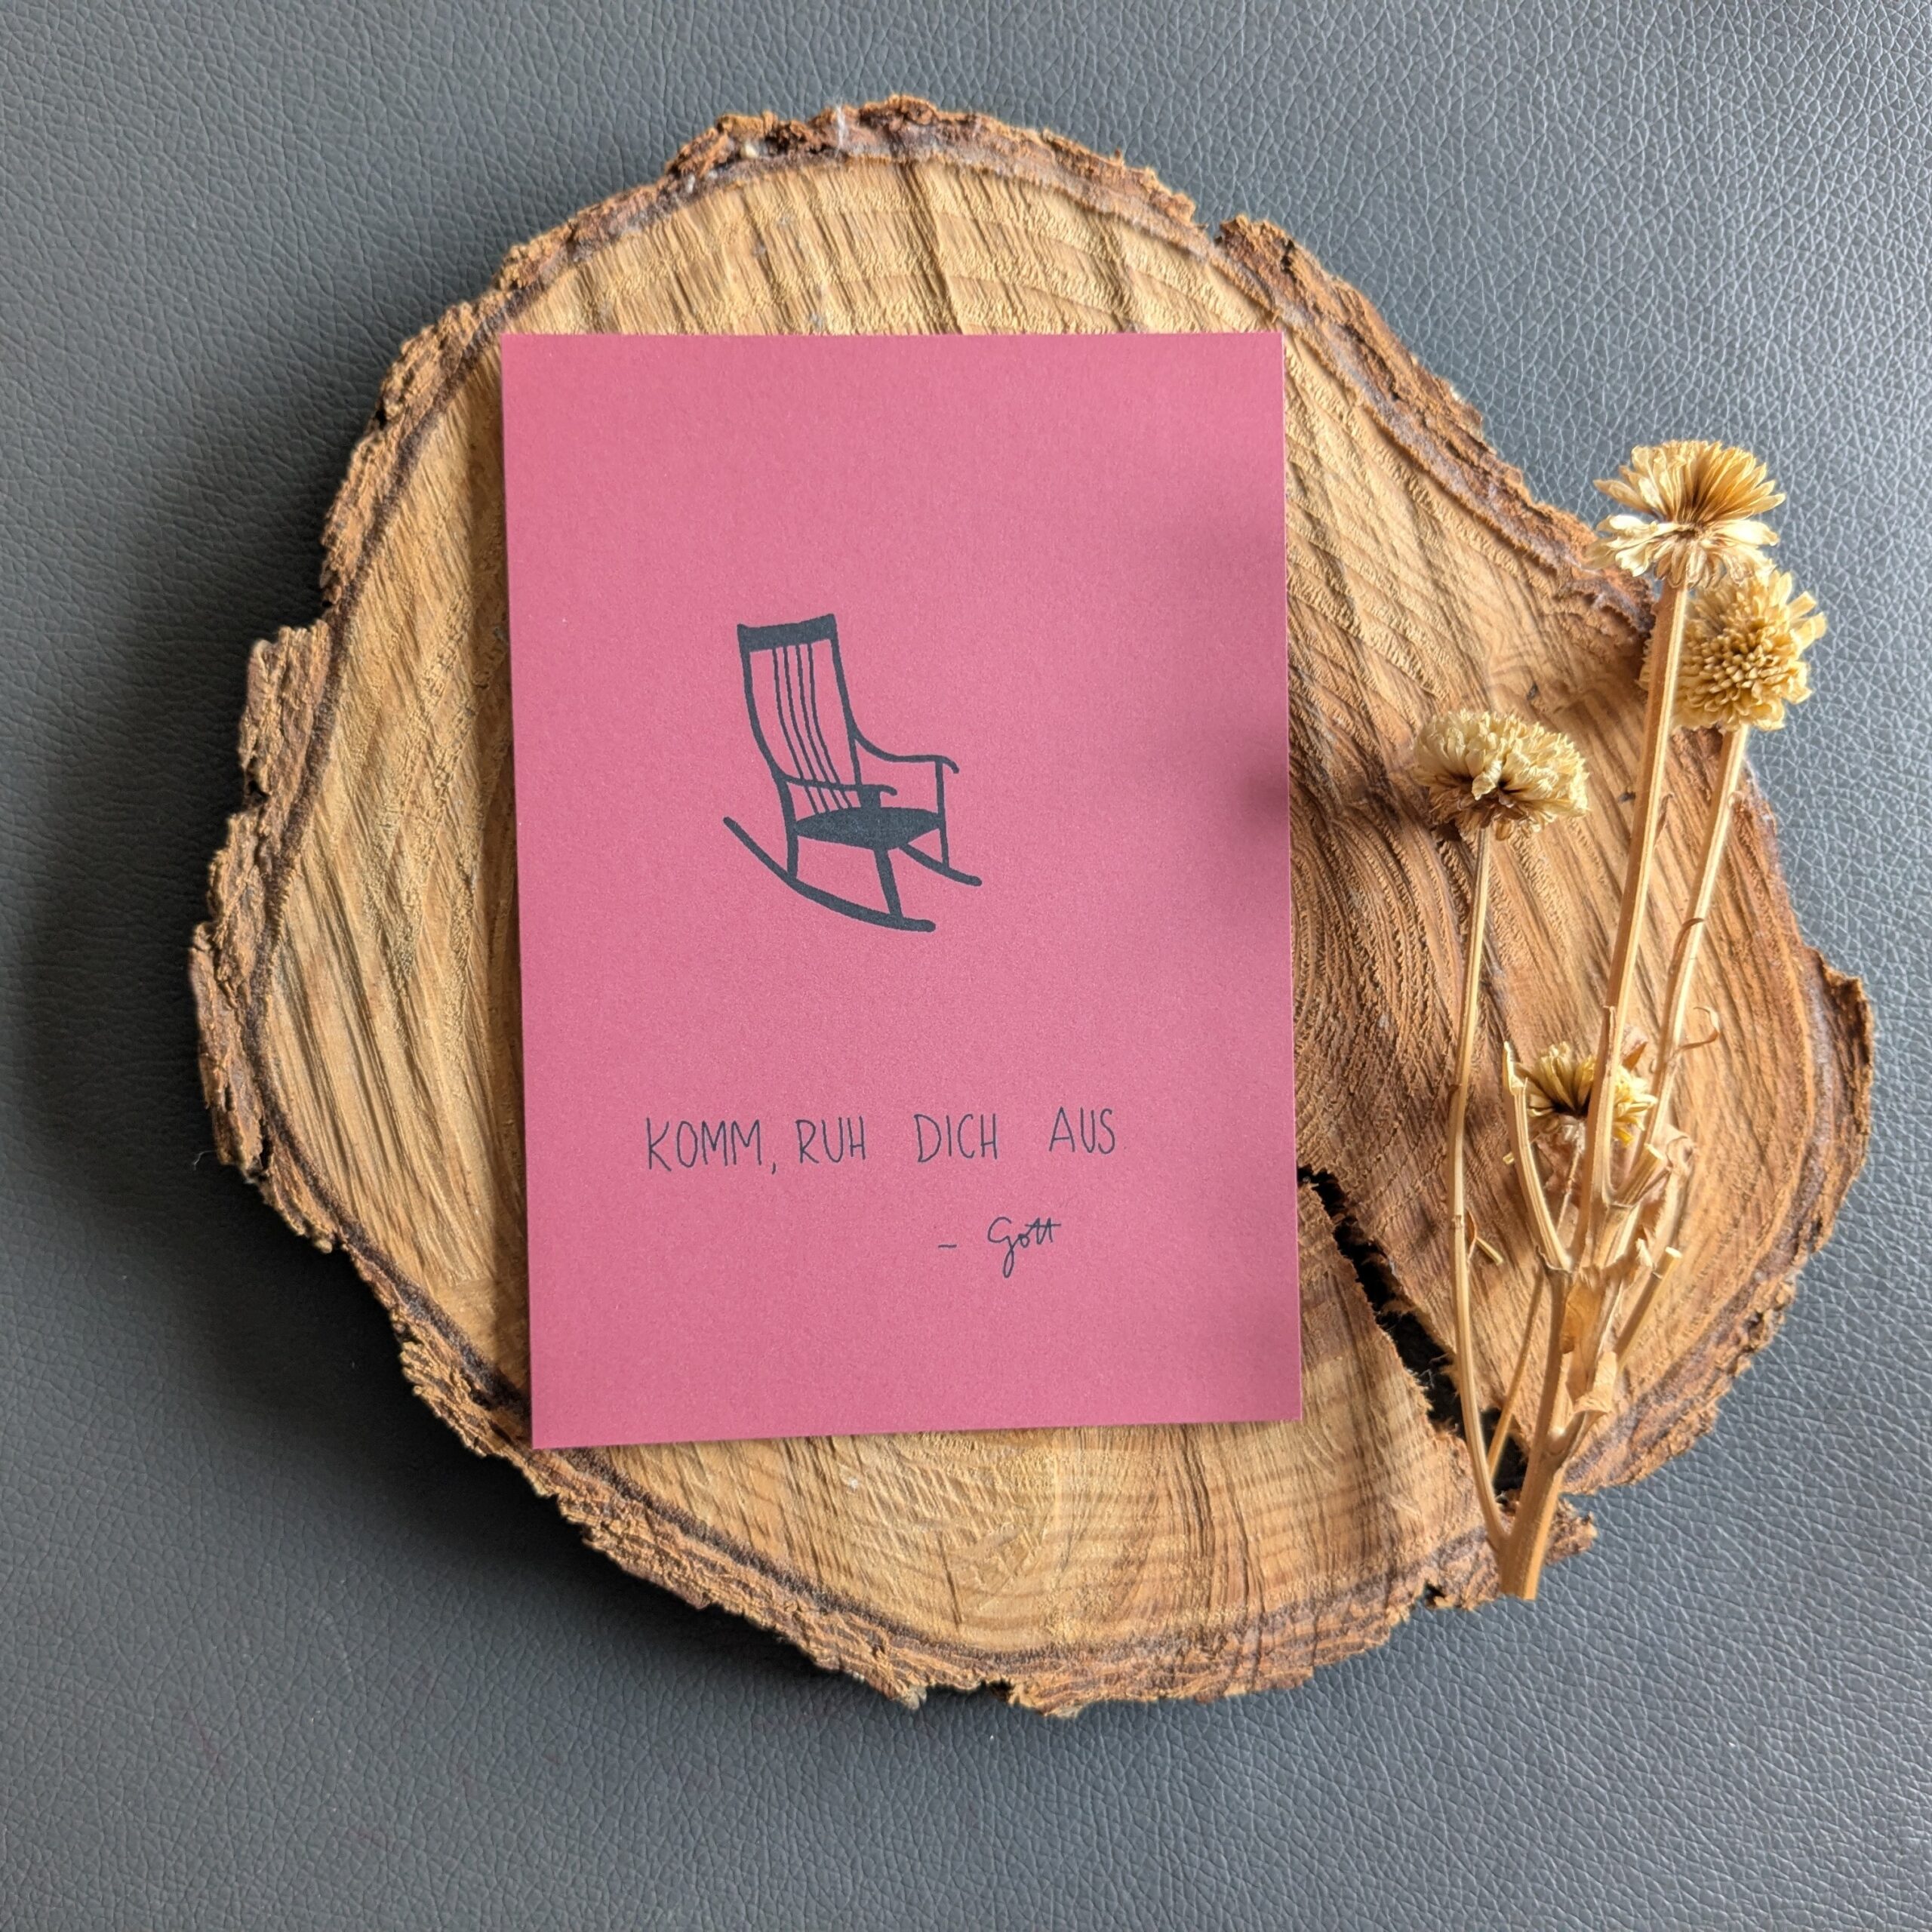 KOMM, RUH DICH AUS
- Gott